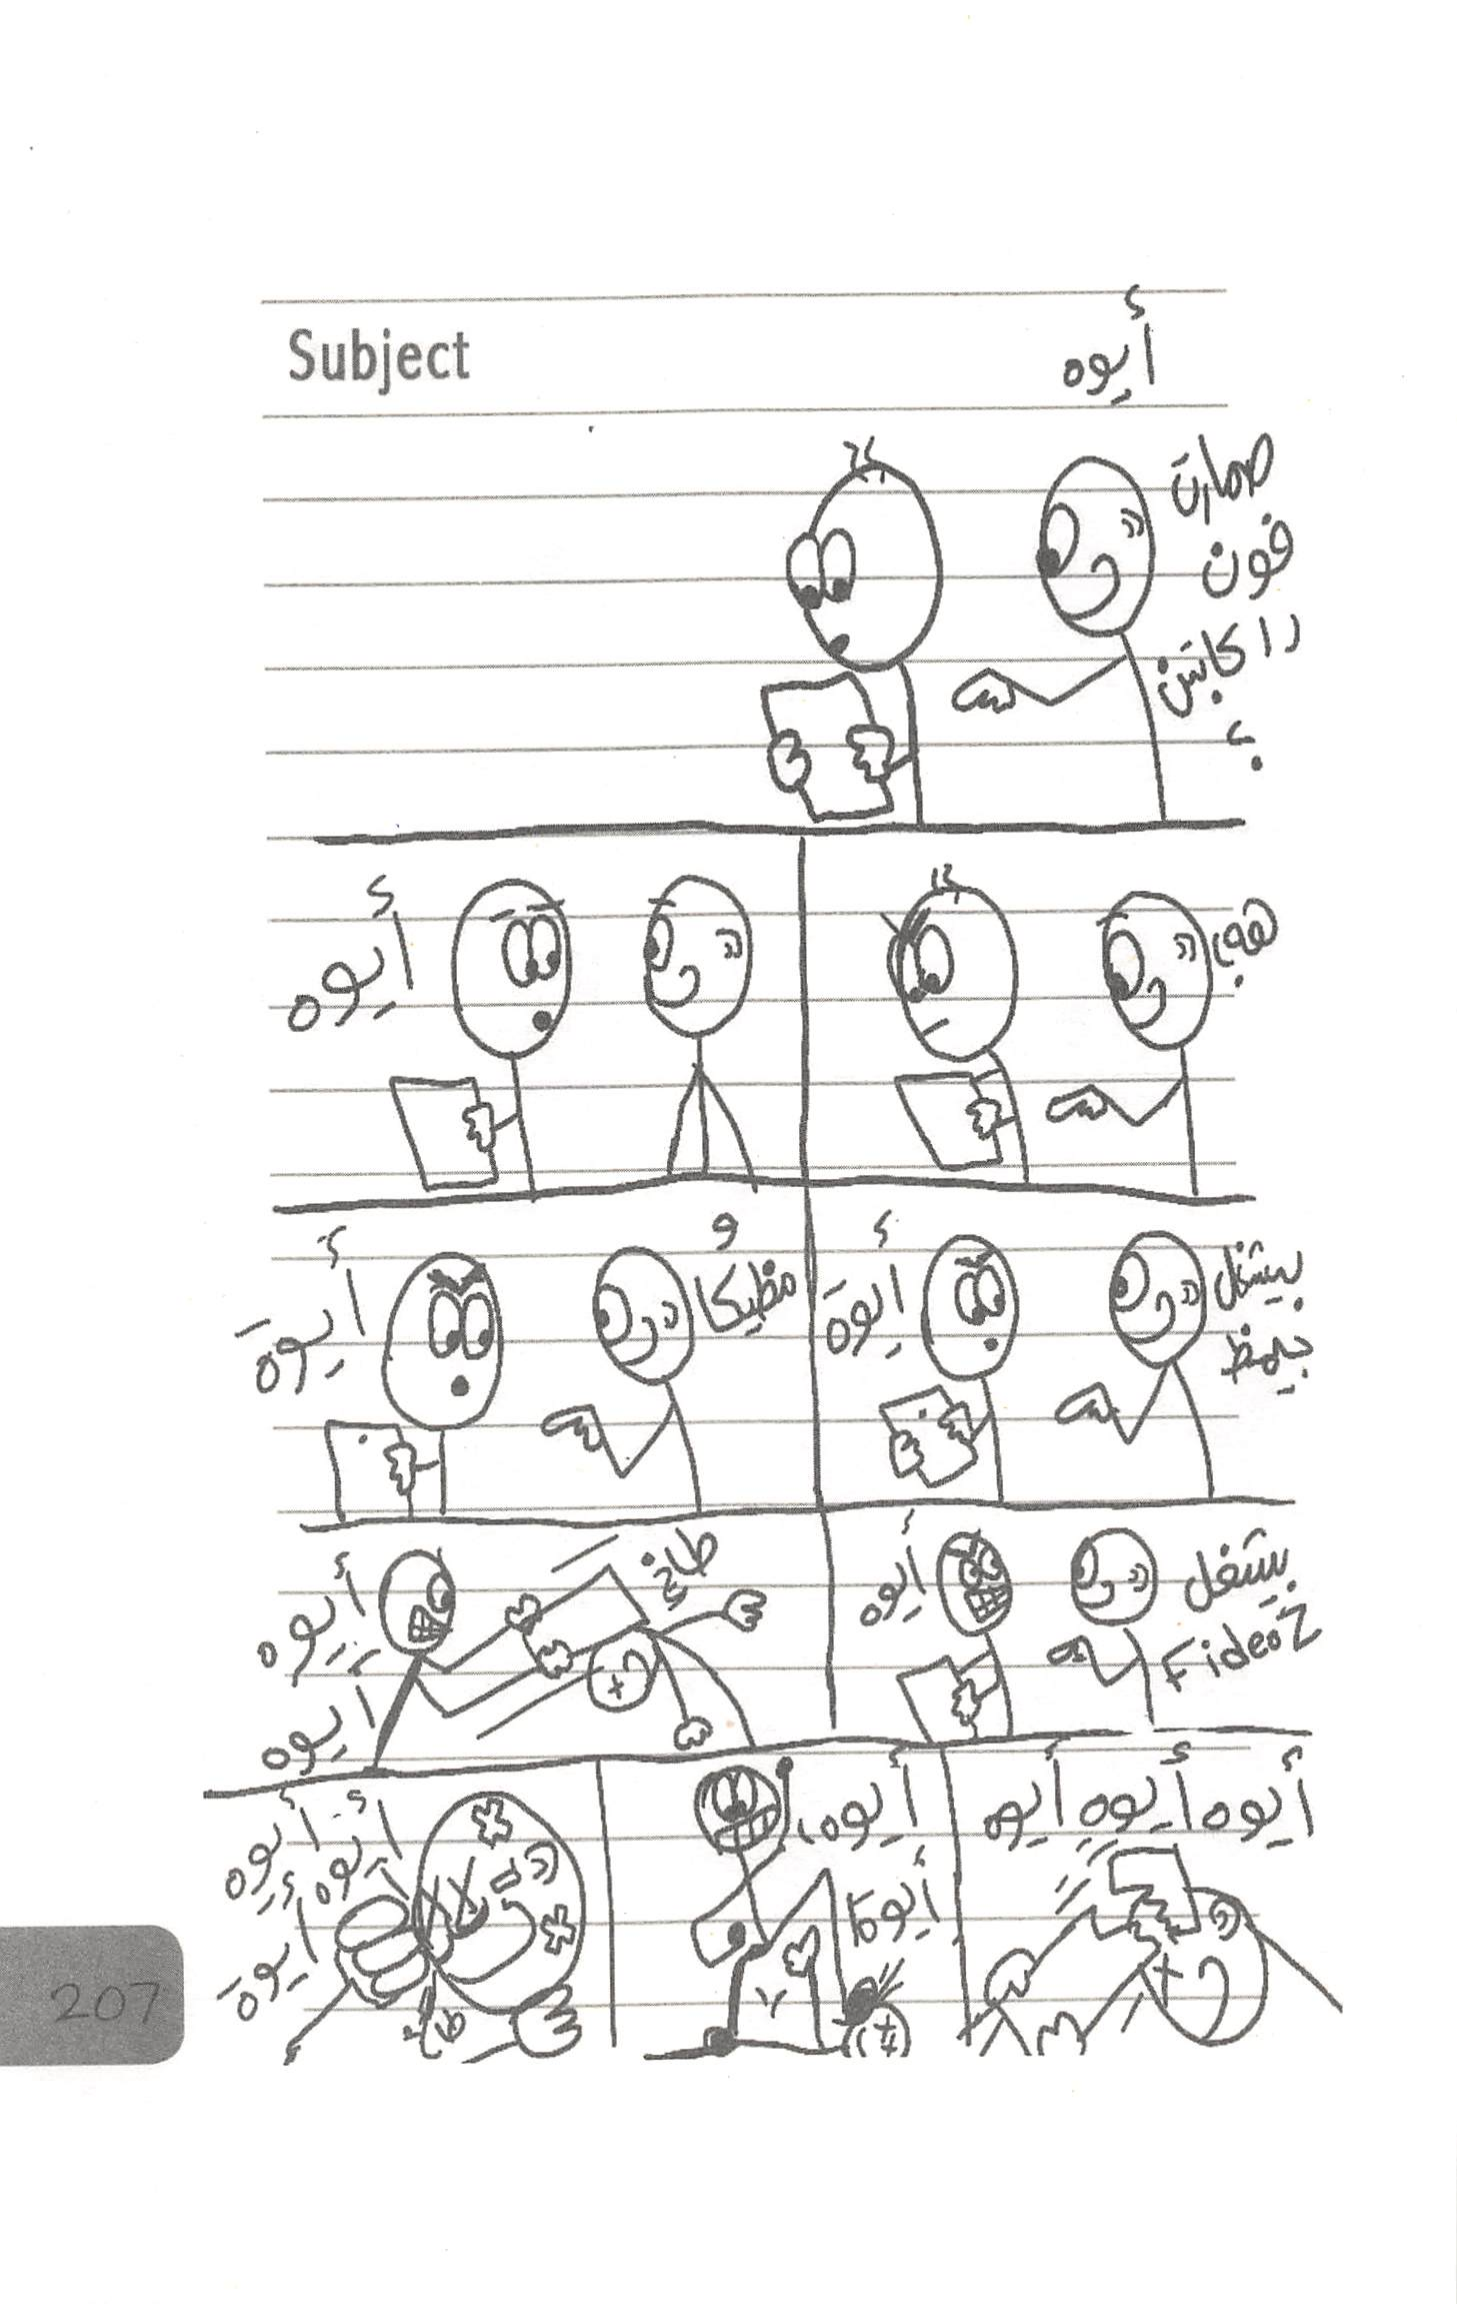 Subject
أيوه
صمارت
فون
دا كابتن
؟
أيوه
بيشغل
أيوة
و
مظيكا
أيوة
بيشغل
Fideoz
أيوه
طاخ
أيوه
أيوه
أيوه أيوه أيوه
أيوه
أيوه
أيوه
أيوه
أيوة
طاخ
207